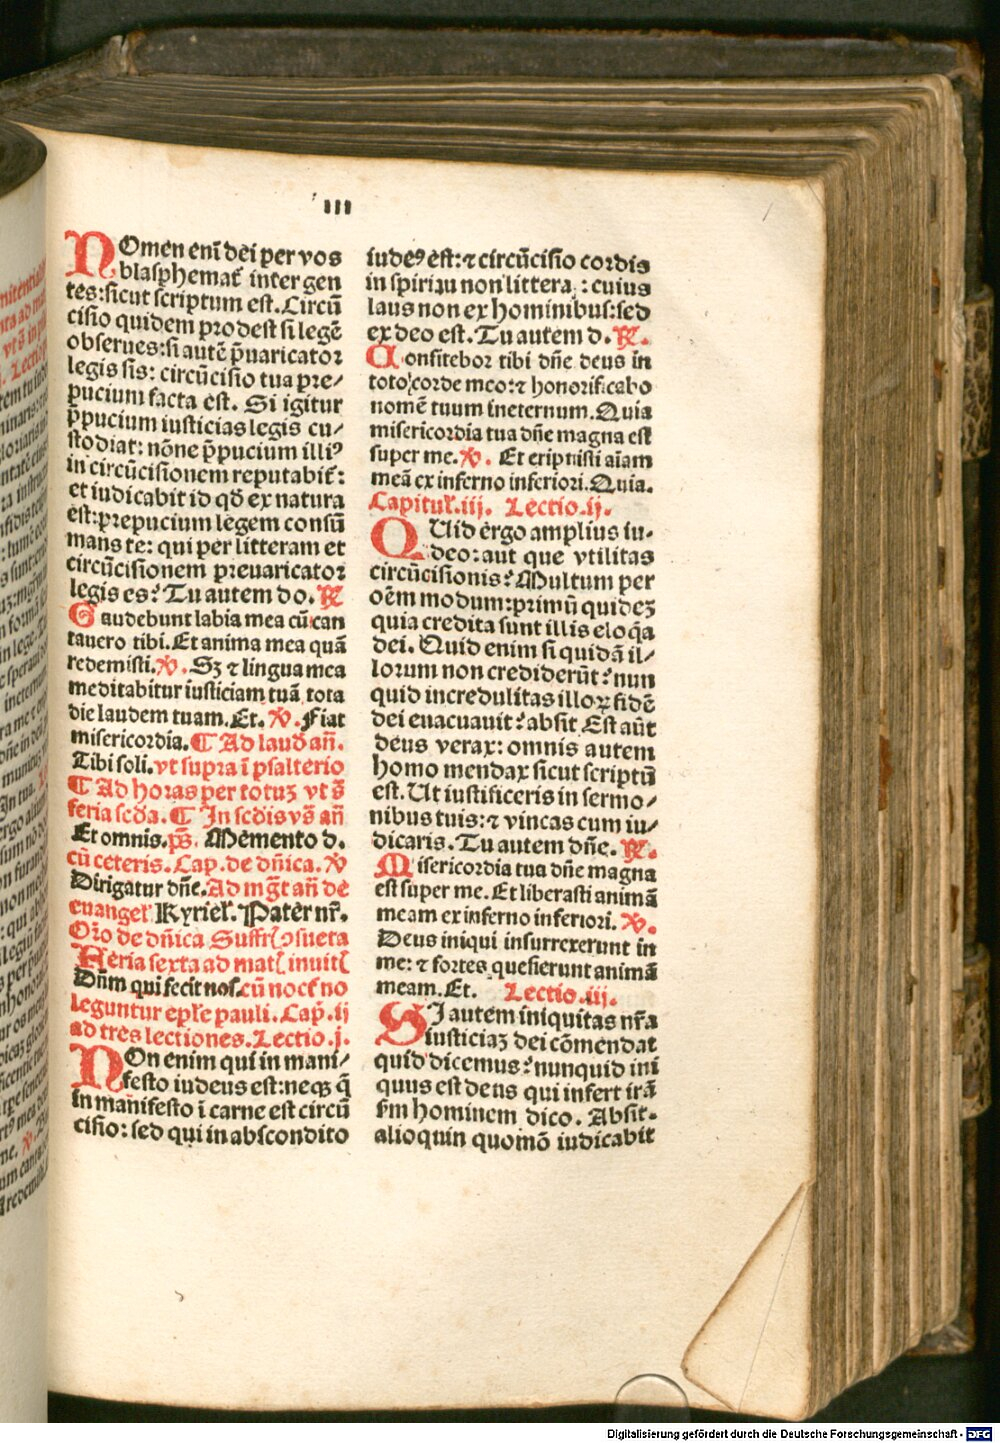 III
NOmen enī dei per vos
blasphemat̄ inter gen
tes:sicut scriptum est.Circū
cisio quidem prodest si legē
obserues:si autē p̄uaricator
legis sis: circūcisio tua pre⸗
pucium facta est. Si igitur
p̄pucium iusticias legis cu⸗
stodiat: nōne p̄pucium illiꝰ
in circūcisionem reputabit̄:
et iudicabit id qd̄ ex natura
est:prepucium legem consū
mans te: qui per litteram et
circūcisionem preuaricator
legis es? Tu autem do. ℟
Gaudebunt labia mea cū can
tauero tibi. Et anima mea quā
redemisti. ℣. Sꝫ ⁊ lingua mea
meditabitur iusticiam tuā tota
die laudem tuam. Et. ℣. Fiat
misericordia. ¶ Ad laud̄ an̄.
Tibi soli. vt supra ī psalterio
¶ Ad horas per totuꝫ vt s̄
feria scd̄a. ¶ In scd̄is vs̄ an̄
Et omnis. ps̄. Memento d.
cū ceteris. Cap. de dn̄ica. ℣
Dirigatur dn̄e. Ad mgt̄ an̄ de
euangeł Kyrieł. Pater nr̄.
Or̄o de dn̄ica Suffrꝭ ↄsueta
Feria sexta ad matꝭ inuitꝭ
Dn̄m qui fecit nos. cū noct̄ no
leguntur eple pauli. Cap̄. ij
ad tres lectiones. Lectio. j.
NOn enim qui in mani⸗
festo iudeus est:neqꝫ q̄
in manifesto ī carne est circū
cisio: sed qui in abscondito
iudeꝰ est:⁊ circūcisio cordis
in spiritu non littera : cuius
laus non ex hominibus:sed
ex deo est. Tu autem d. ℟.
Confitebor tibi dn̄e deus in
toto corde meo:⁊ honorificabo
nomē tuum ineternum. Quia
misericordia tua dn̄e magna est
super me. ℣. Et eripuisti aīam
meā ex inferno inferiori. Quia.
Capituł. iij. Lectio. ij.
QUid ergo amplius iu⸗
deo:aut que vtilitas
circūcisionis? Multum per
oēm modum:primū quideꝫ
quia credita sunt illis eloq̄a
dei. Quid enim si quidā il⸗
lorum non crediderūt? nun
quid incredulitas illoꝝ fidē
dei euacuauit? absit Est aūt
deus verax: omnis autem
homo mendax sicut scriptū
est. Ut iustificeris in sermo⸗
nibus tuis:⁊ vincas cum iu⸗
dicaris. Tu autem dn̄e. ℟.
Misericordia tua dn̄e magna
est super me. Et liberasti animā
meam ex inferno inferiori. ℣.
Deus iniqui insurrexerunt in
me: ⁊ fortes quesierunt animā
meam. Et. Lectio. iij.
SI autem iniquitas nr̄a
iusticiaꝫ dei cōmendat
quid dicemus? nunquid ini
quus est deus qui infert irā
s̄m hominem dico. Absit⸗
alioquin quomō iudicabit
Digitalisierung gefördert durch die Deutsche Forschungsgemeinschaft - DFG